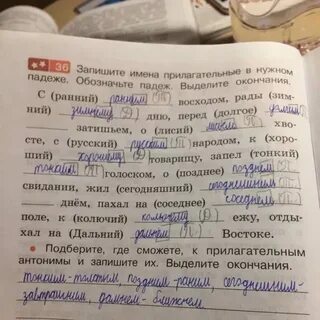 36 Запишите имена прилагательные в нужном
падеже. Обозначьте падеж. Выделите окончания.
С (ранний) ранним (Т) восходом, рады (зим-
ний) зимнему (Д) дню, перед (долгое)
затишьем, о (лисий) (П) хво-
сте, с (русский) русским (Т) народом, к (хоро-
ший) хорошему (Д) товарищу, запел (тонкий)
тонким (Т) голоском, о (позднее) позднем (П)
свидании, жил (сегодняшний) сегодняшним
днём, пахал на (соседнее) соседнем (П)
поле, к (колючий) колючему (Д) ежу, отды-
хал на (Дальний) дальнем (П) Востоке.
• Подберите, где сможете, к прилагательным
антонимы и запишите их. Выделите окончания.
тонким-толстым, поздним-раним, сегодняшним-
завтрашним, дальнем-ближнем